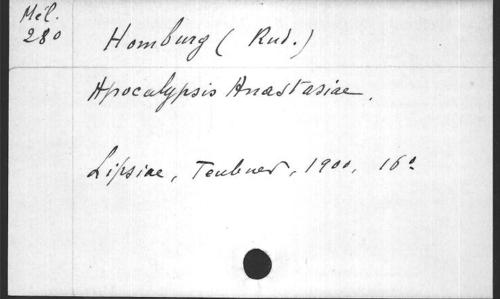 Mél.
280
Homburg (Rud.)
Apocalypsis Anastasiae.
Lipsiae, Teubner, 1900, 16º